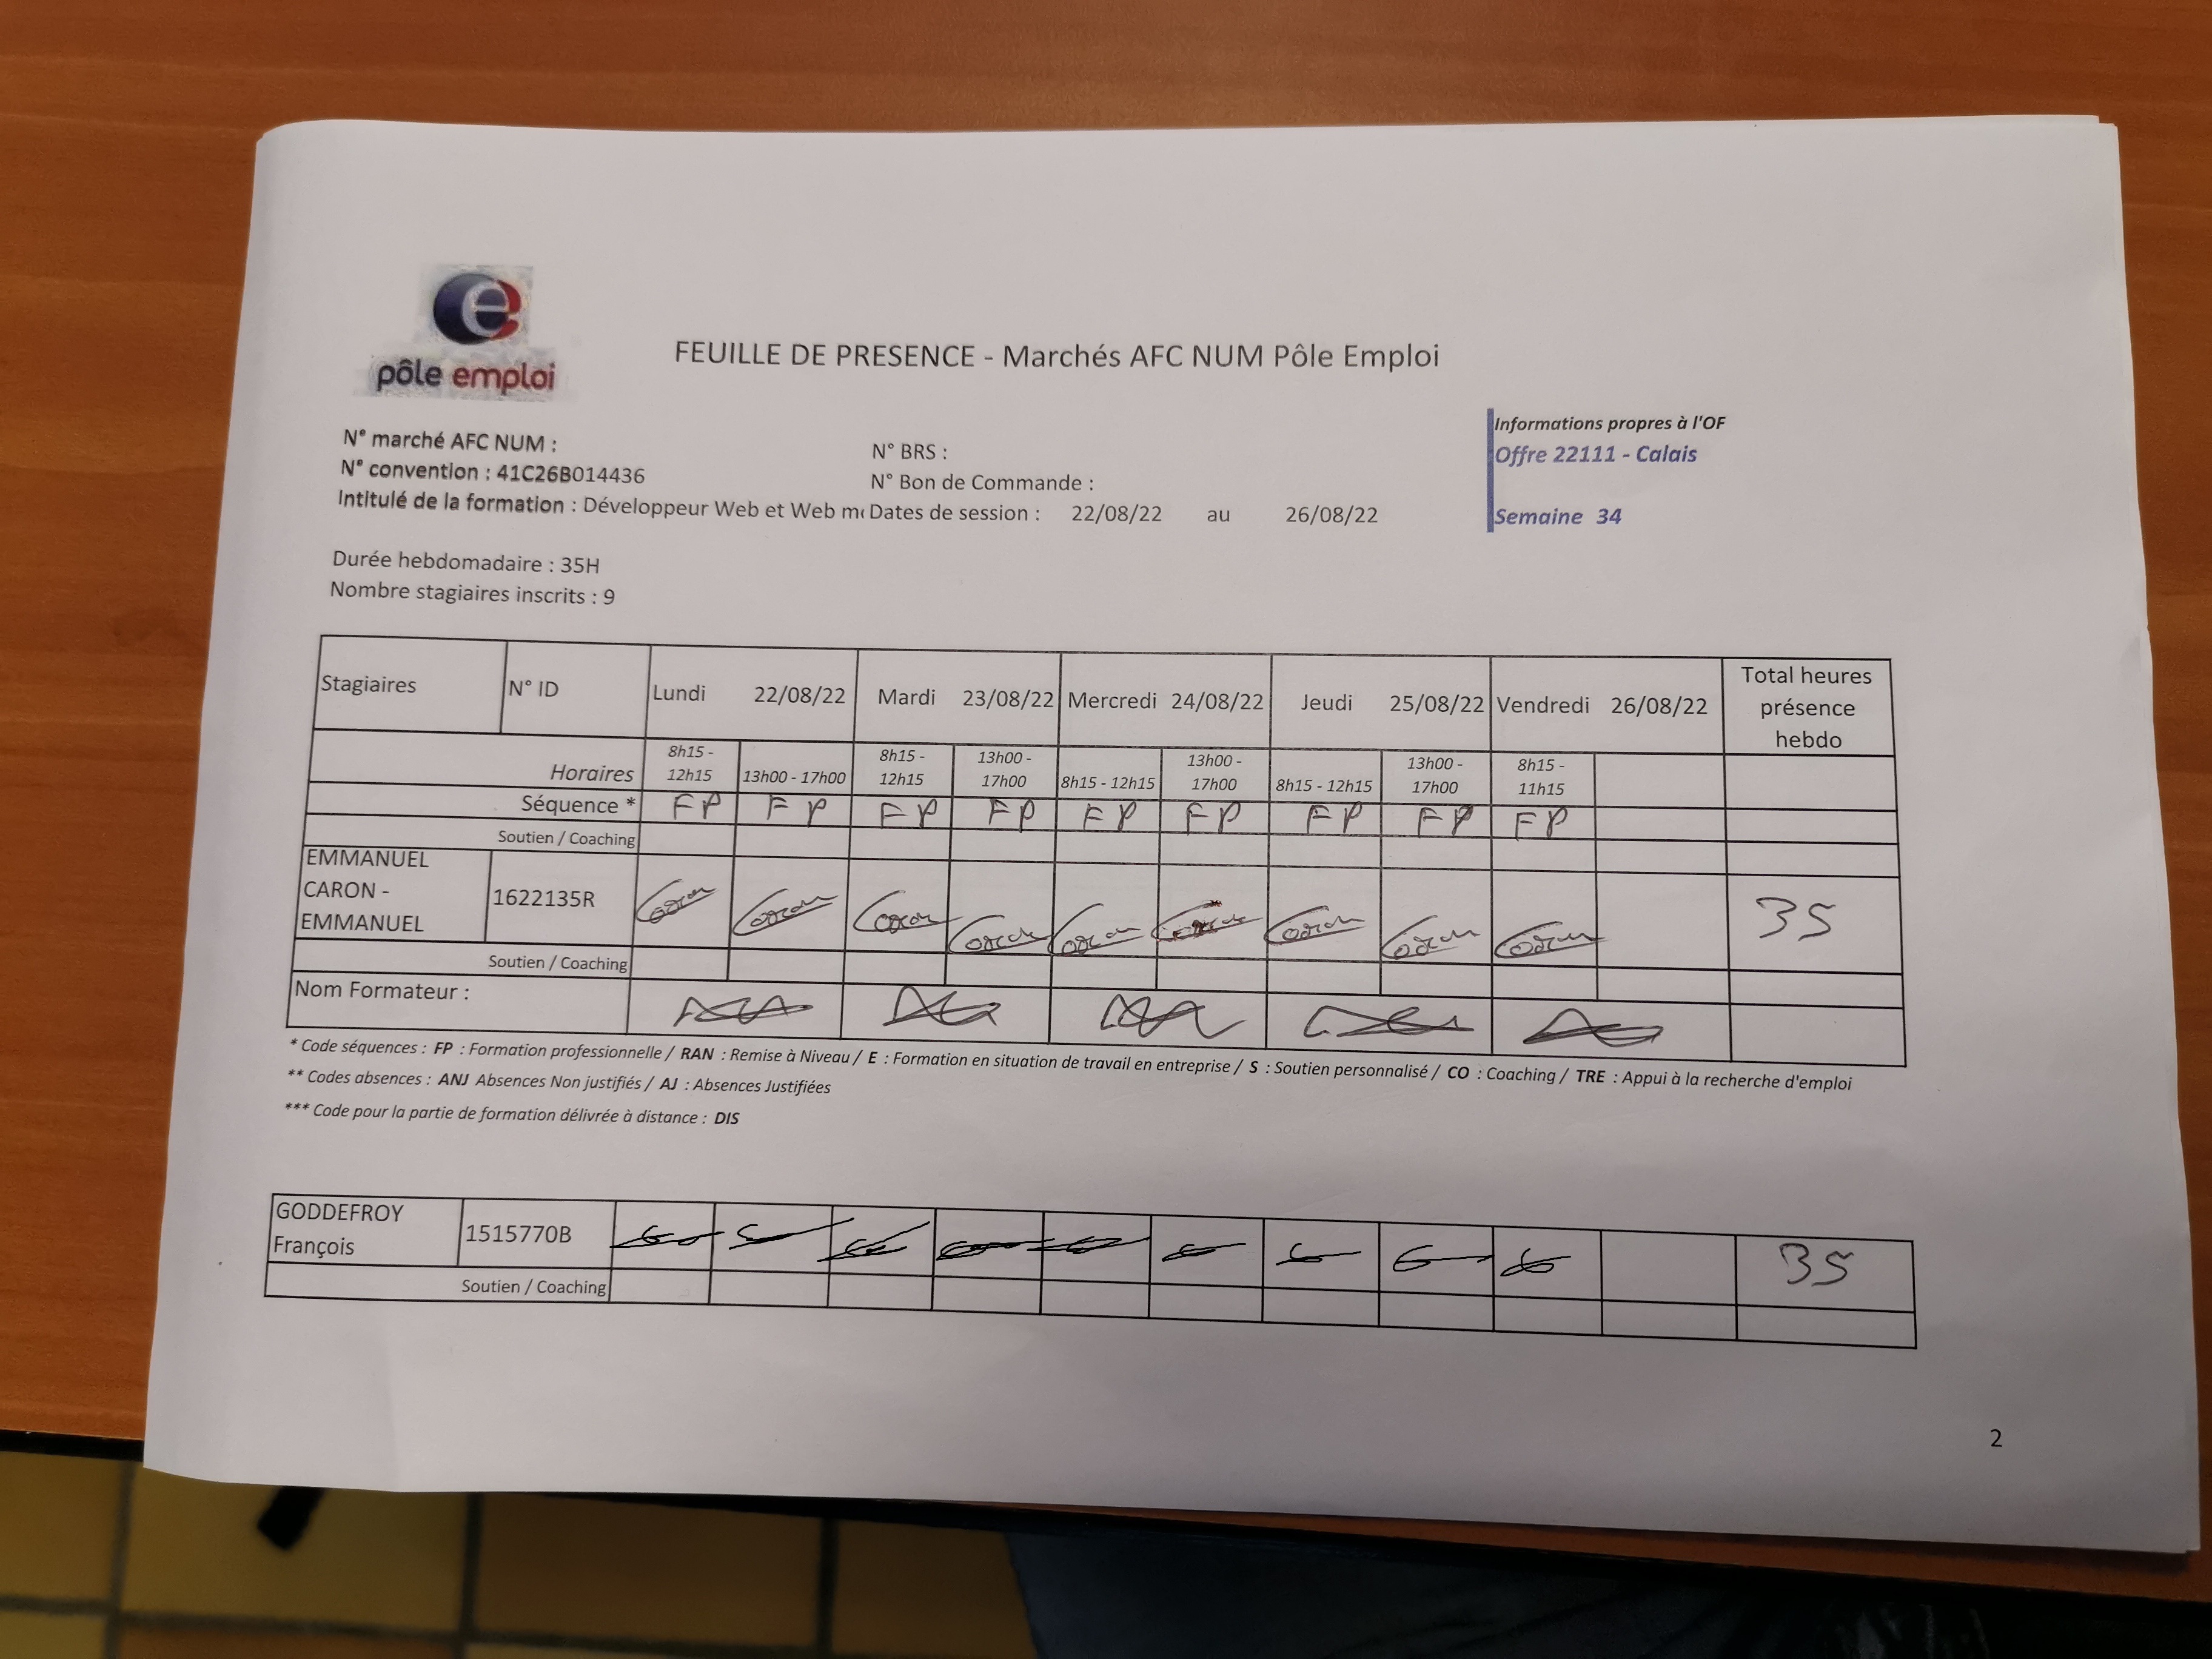 e
pôle emploi
FEUILLE DE PRESENCE - Marchés AFC NUM Pôle Emploi
Informations propres à l'OF
Offre 22111 - Calais
Semaine 34
N° marché AFC NUM :
N° convention : 41C26B014436
Intitulé de la formation : Développeur Web et Web m
N° BRS :
N° Bon de Commande :
Dates de session : 22/08/22 au 26/08/22
Durée hebdomadaire : 35H
Nombre stagiaires inscrits : 9
Stagiaires N° ID Lundi 22/08/22 Mardi 23/08/22 Mercredi 24/08/22 Jeudi 25/08/22 Vendredi 26/08/22 Total heures présence hebdo
Horaires 8h15 - 12h15 13h00 - 17h00 8h15 - 12h15 13h00 - 17h00 8h15 - 12h15 13h00 - 17h00 8h15 - 12h15 13h00 - 17h00 8h15 - 11h15
Séquence * FP FP FP FP FP FP FP FP FP
Soutien / Coaching
EMMANUEL
CARON - 1622135R Caron Caron Caron Caron Caron Caron Caron Caron Caron 35
EMMANUEL
Soutien / Coaching
Nom Formateur :
* Code séquences : FP : Formation professionnelle / RAN : Remise à Niveau / E : Formation en situation de travail en entreprise / S : Soutien personnalisé / CO : Coaching / TRE : Appui à la recherche d'emploi
** Codes absences : ANJ Absences Non justifiés / AJ : Absences Justifiées
*** Code pour la partie de formation délivrée à distance : DIS
GODDEFROY
François 1515770B 35
Soutien / Coaching
2